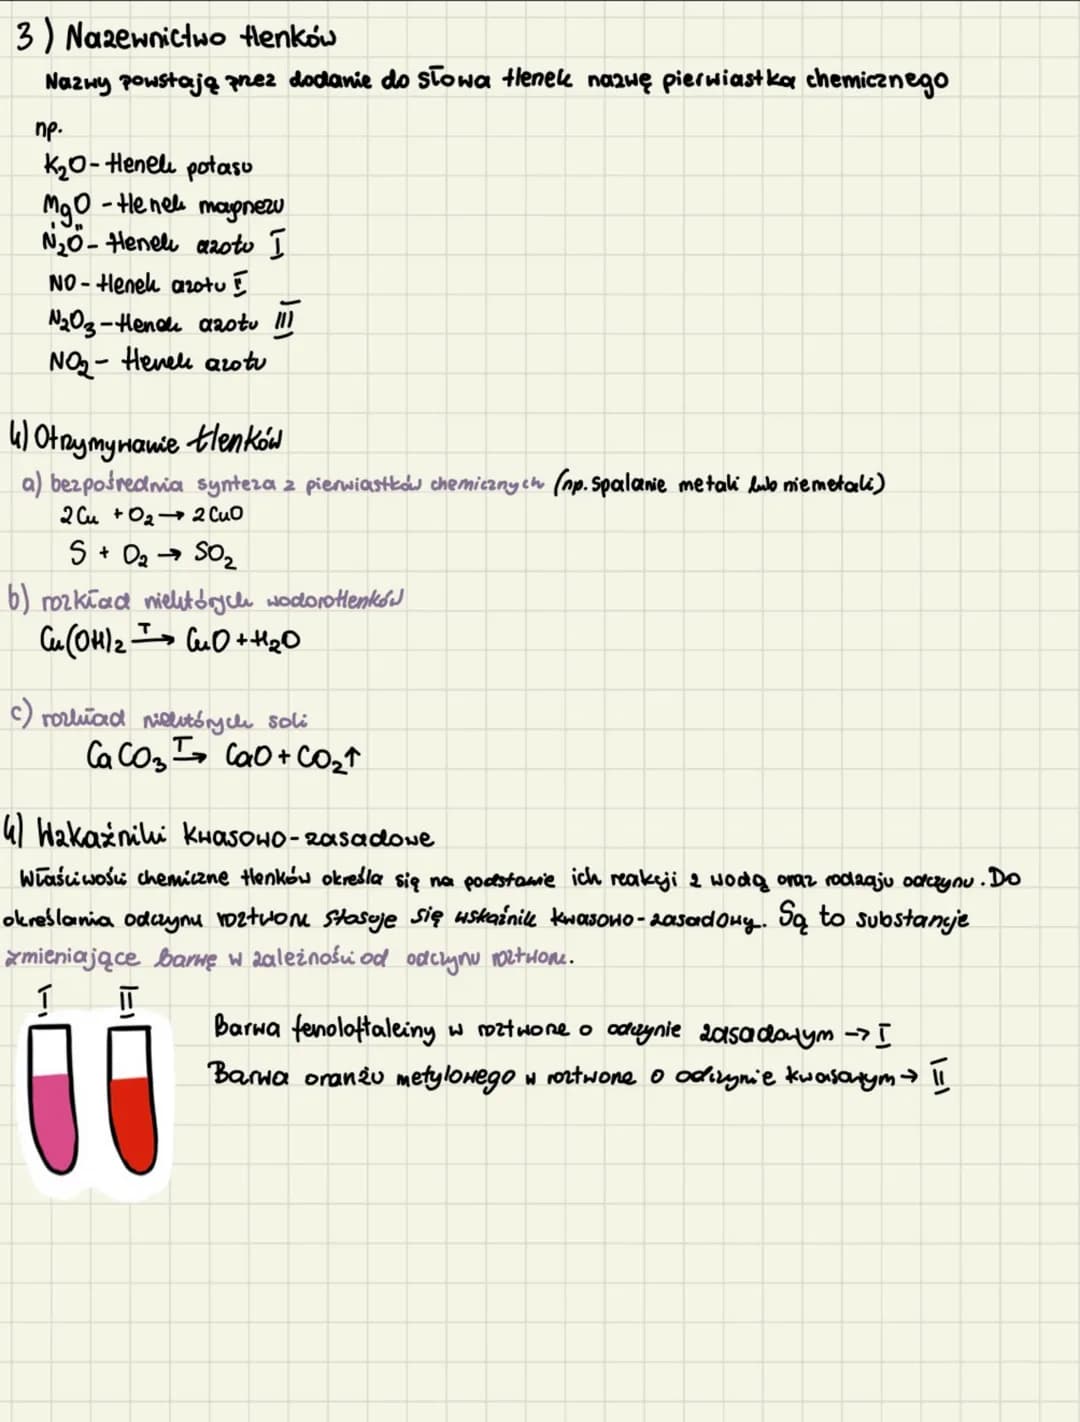 3) Nazewnictwo tlenków
Nazwy powstają przez dodanie do słowa tlenek nazwę pierwiastka chemicznego
np.
K₂O - tlenek potasu
MgO - tlenek magnezu
N₂O - tlenek azotu I
NO - tlenek azotu II
N₂O₃ - tlenek azotu III
NO₂ - tlenek azotu
4) Otrzymywanie tlenków
a) bezpośrednia synteza z pierwiastków chemicznych (np. spalanie metali lub niemetali)
2Cu + O₂ → 2CuO
S + O₂ → SO₂
b) rozkład niektórych wodorotlenków
Cu(OH)₂ T→ CuO + H₂O
c) rozkład niektórych soli
CaCO₃ T→ CaO + CO₂↑
4) Wskaźniki kwasowo-zasadowe
Właściwości chemiczne tlenków określa się na podstawie ich reakcji z wodą oraz rodzaju odczynu. Do
określania odczynu roztworu stosuje się wskaźnik kwasowo-zasadowy. Są to substancje
zmieniające barwę w zależności od odczynu roztworu.
I II
Barwa fenoloftaleiny w roztworze o odczynie zasadowym → I
Barwa oranżu metylowego w roztworze o odczynie kwasowym → II